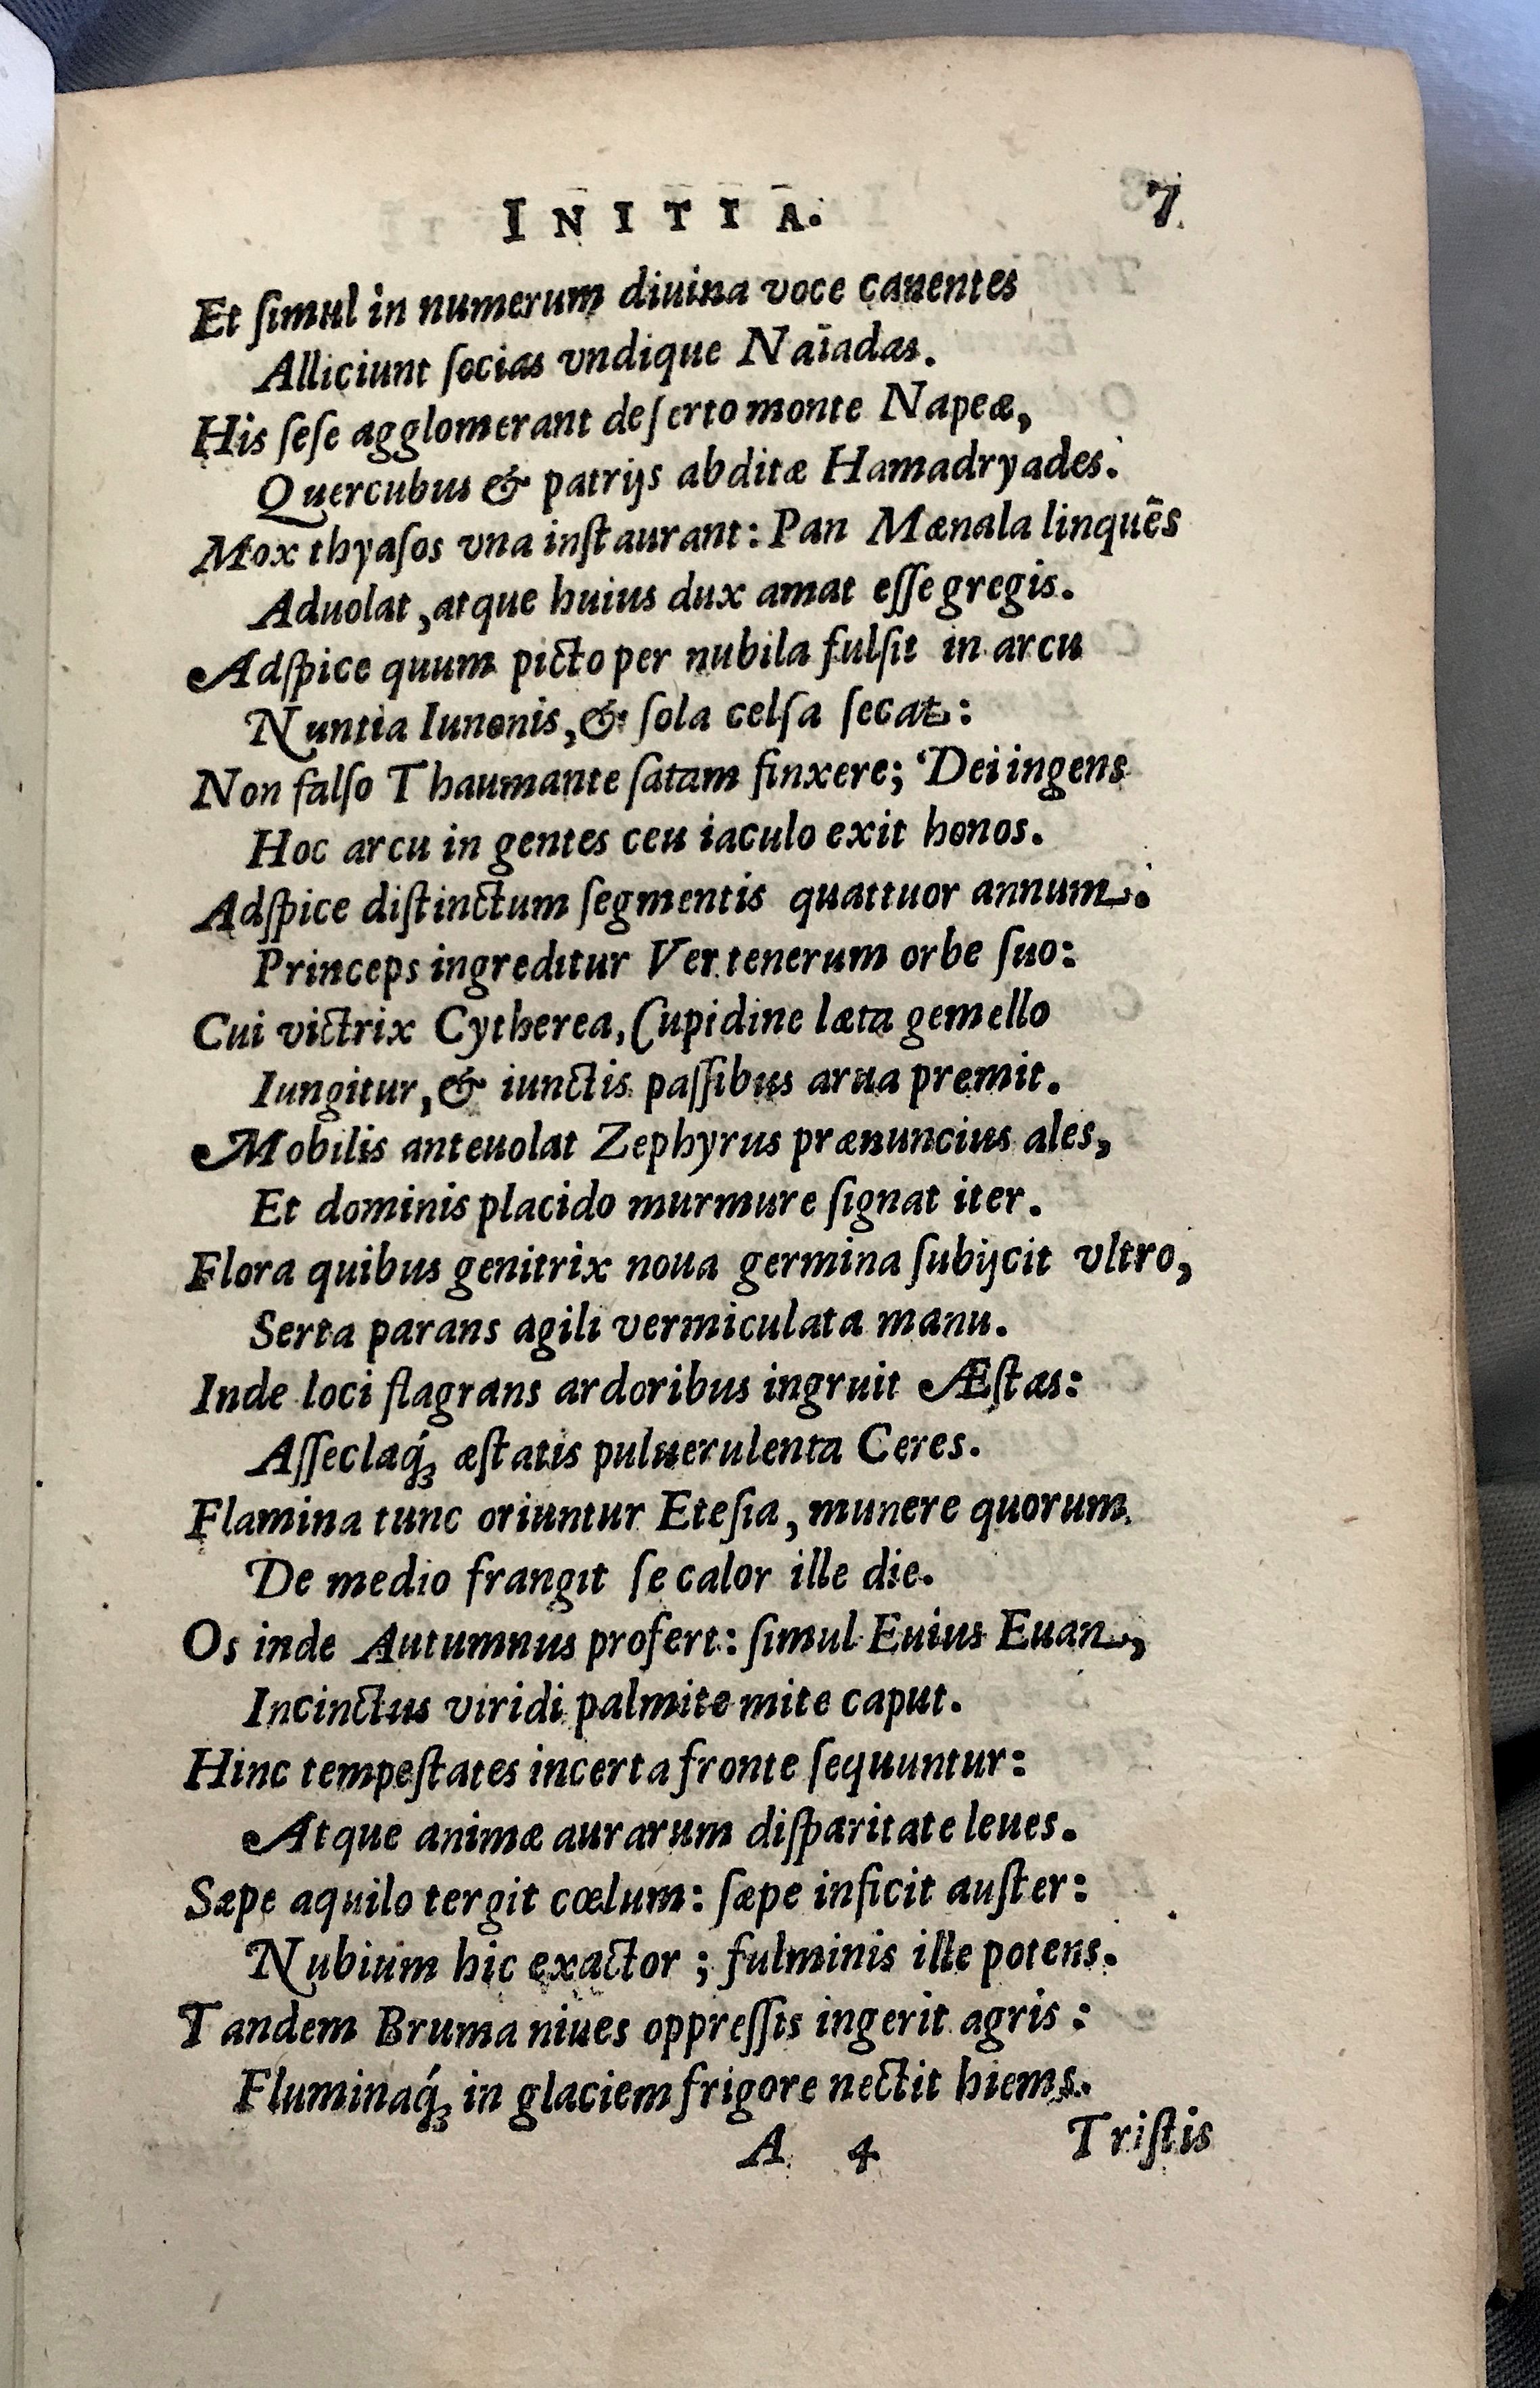 INITIA. 7
Et ſimul in numerum diuina voce canentes
Alliciunt ſocias vndique Naïadas.
His ſeſe agglomerant deſerto monte Napeæ,
Quercubus & patrijs abditæ Hamadryades.
Mox thyaſos vna inſtaurant: Pan Mænala linquẽs
Aduolat, atque huius dux amat eſſe gregis.
Adſpice quum picto per nubila fulſit in arcu
Nuntia Iunonis, & ſola celſa ſecat:
Non falſo Thaumante ſatam finxere; Dei ingens
Hoc arcu in gentes ceu iaculo exit honos.
Adſpice diſtinctum ſegmentis quattuor annum.
Princeps ingreditur Ver tenerum orbe ſuo:
Cui victrix Cytherea, Cupidine læta gemello
Iungitur, & iunctis paſſibus arua premit.
Mobilis anteuolat Zephyrus prænuncius ales,
Et dominis placido murmure ſignat iter.
Flora quibus genitrix noua germina ſubijcit vltro,
Serta parans agili vermiculata manu.
Inde loci flagrans ardoribus ingruit Æſtas:
Aſſeclaq́; æſtatis puluerulenta Ceres.
Flamina tunc oriuntur Eteſia, munere quorum
De medio frangit ſe calor ille die.
Os inde Autumnus profert: ſimul Euius Euan,
Incinctus viridi palmite mite caput.
Hinc tempeſtates incerta fronte ſequuntur:
Atque animæ aurarum diſparitate leues.
Sæpe aquilo tergit cœlum: ſæpe inficit auſter:
Nubium hic exactor; fulminis ille potens.
Tandem Bruma niues oppreſſis ingerit agris:
Fluminaq́; in glaciem frigore nectit hiems.
A 4 Triſtis